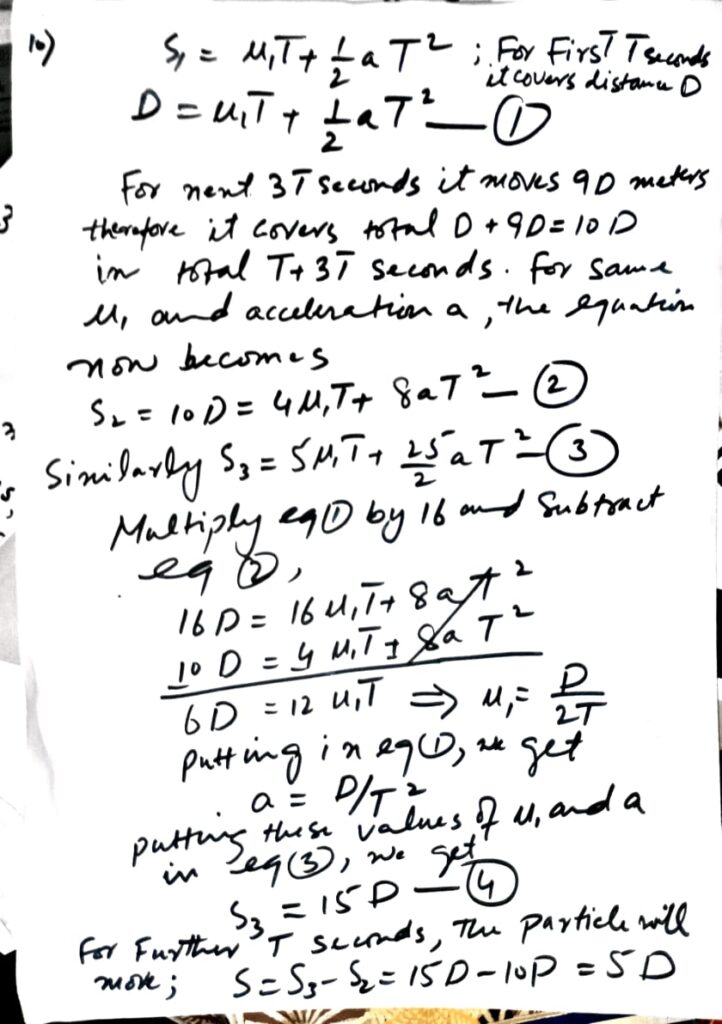 10) S₁ = u₁T + 1/2 a T² ; For First T seconds
it covers distance D
D = u₁T + 1/2 a T² — ①
For next 3T seconds it moves 9D meters
therefore it covers total D + 9D = 10 D
in total T + 3T seconds. for same
u₁ and acceleration a, the equation
now becomes
S₂ = 10 D = 4 u₁T + 8aT² — ②
Similarly S₃ = 5u₁T + 25/2 a T² — ③
Multiply eq ① by 16 and Subtract
eq ②,
16 D = 16 u₁T + 8 a T²
10 D = 4 u₁T + 8a T²
6 D = 12 u₁T ⇒ u₁ = D/2T
putting in eq ①, we get
a = D/T²
putting these values of u₁ and a
in eq (3), we get
S₃ = 15 D — ④
For Further T seconds, The particle will
move; S = S₃ - S₂ = 15 D - 10 D = 5 D